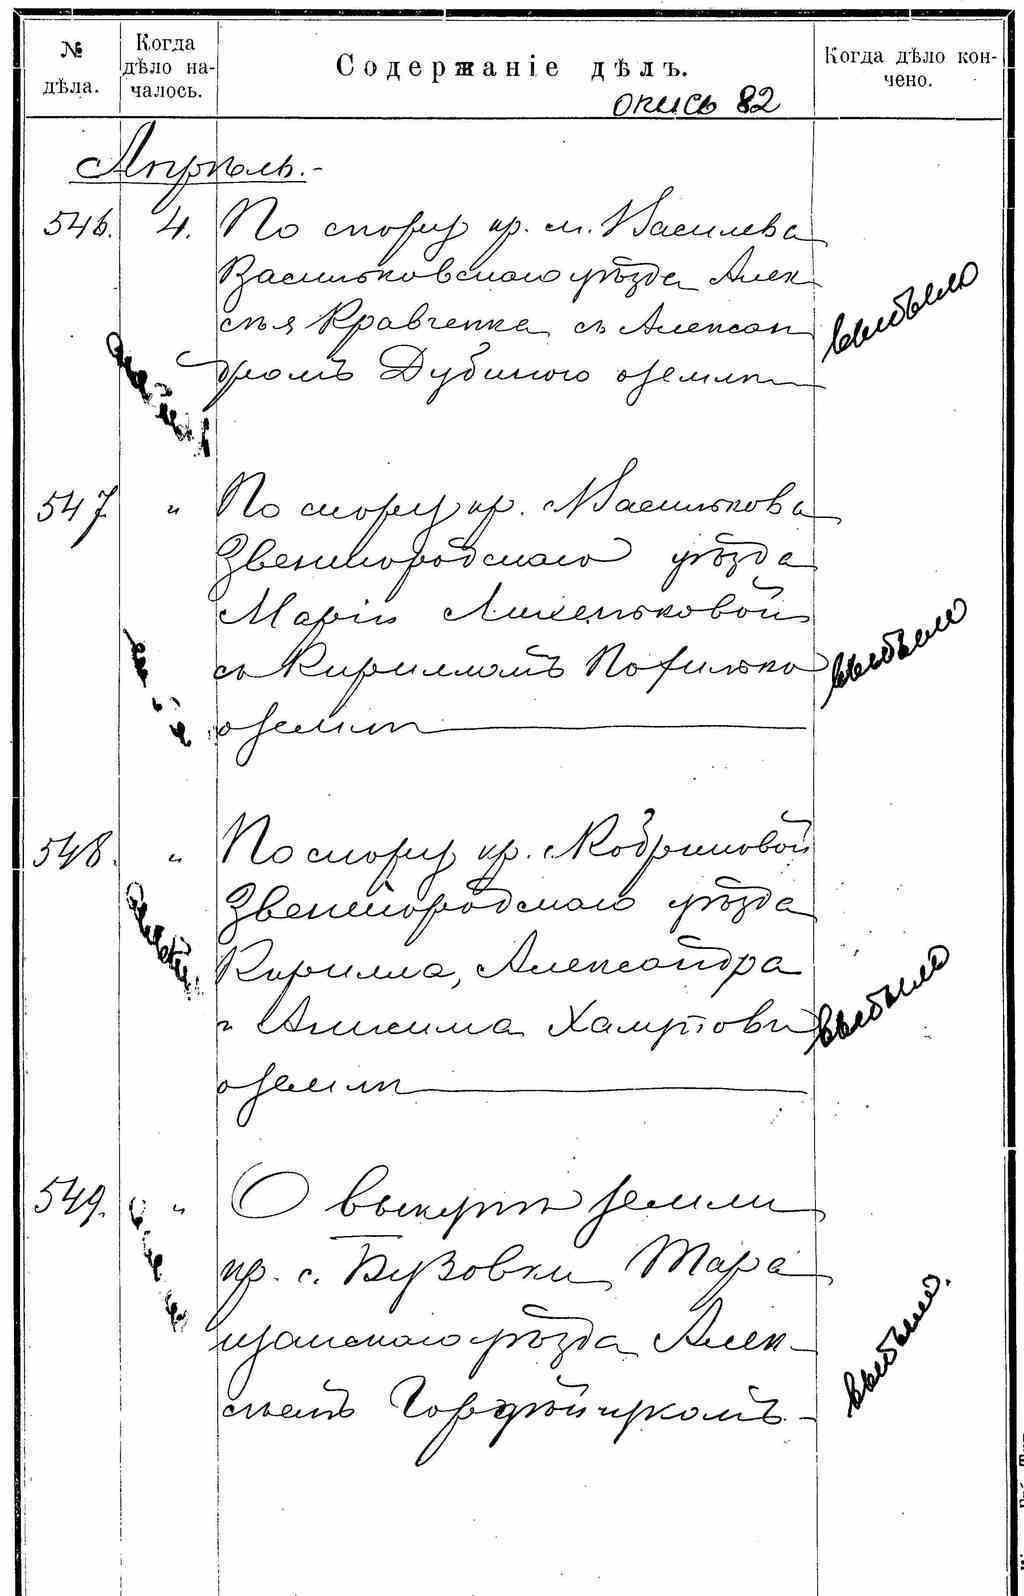 № дѣла.
Когда дѣло началось.
Содержаніе дѣлъ.
Когда дѣло кончено.
опись 82
Апрѣль.-
546. 4. По спору кр. м. Василева
Васильковскаго уѣзда Алек
сѣя Кравченка съ Алексан
дромъ Дубиною о землѣ
выбыло
547 " По спору кр. Василькова
Звенигородскаго уѣзда
Маріи
съ Кирилломъ
о землѣ
выбыло
548. " По спору кр. Кобриновой
Звенигородскаго уѣзда
Кирилла, Александра
и Анисима
о землѣ
выбыло
549. " О выкупѣ земли
кр. с. Бузовки Тара
щанскаго уѣзда Алек-
сѣемъ
выбыло.